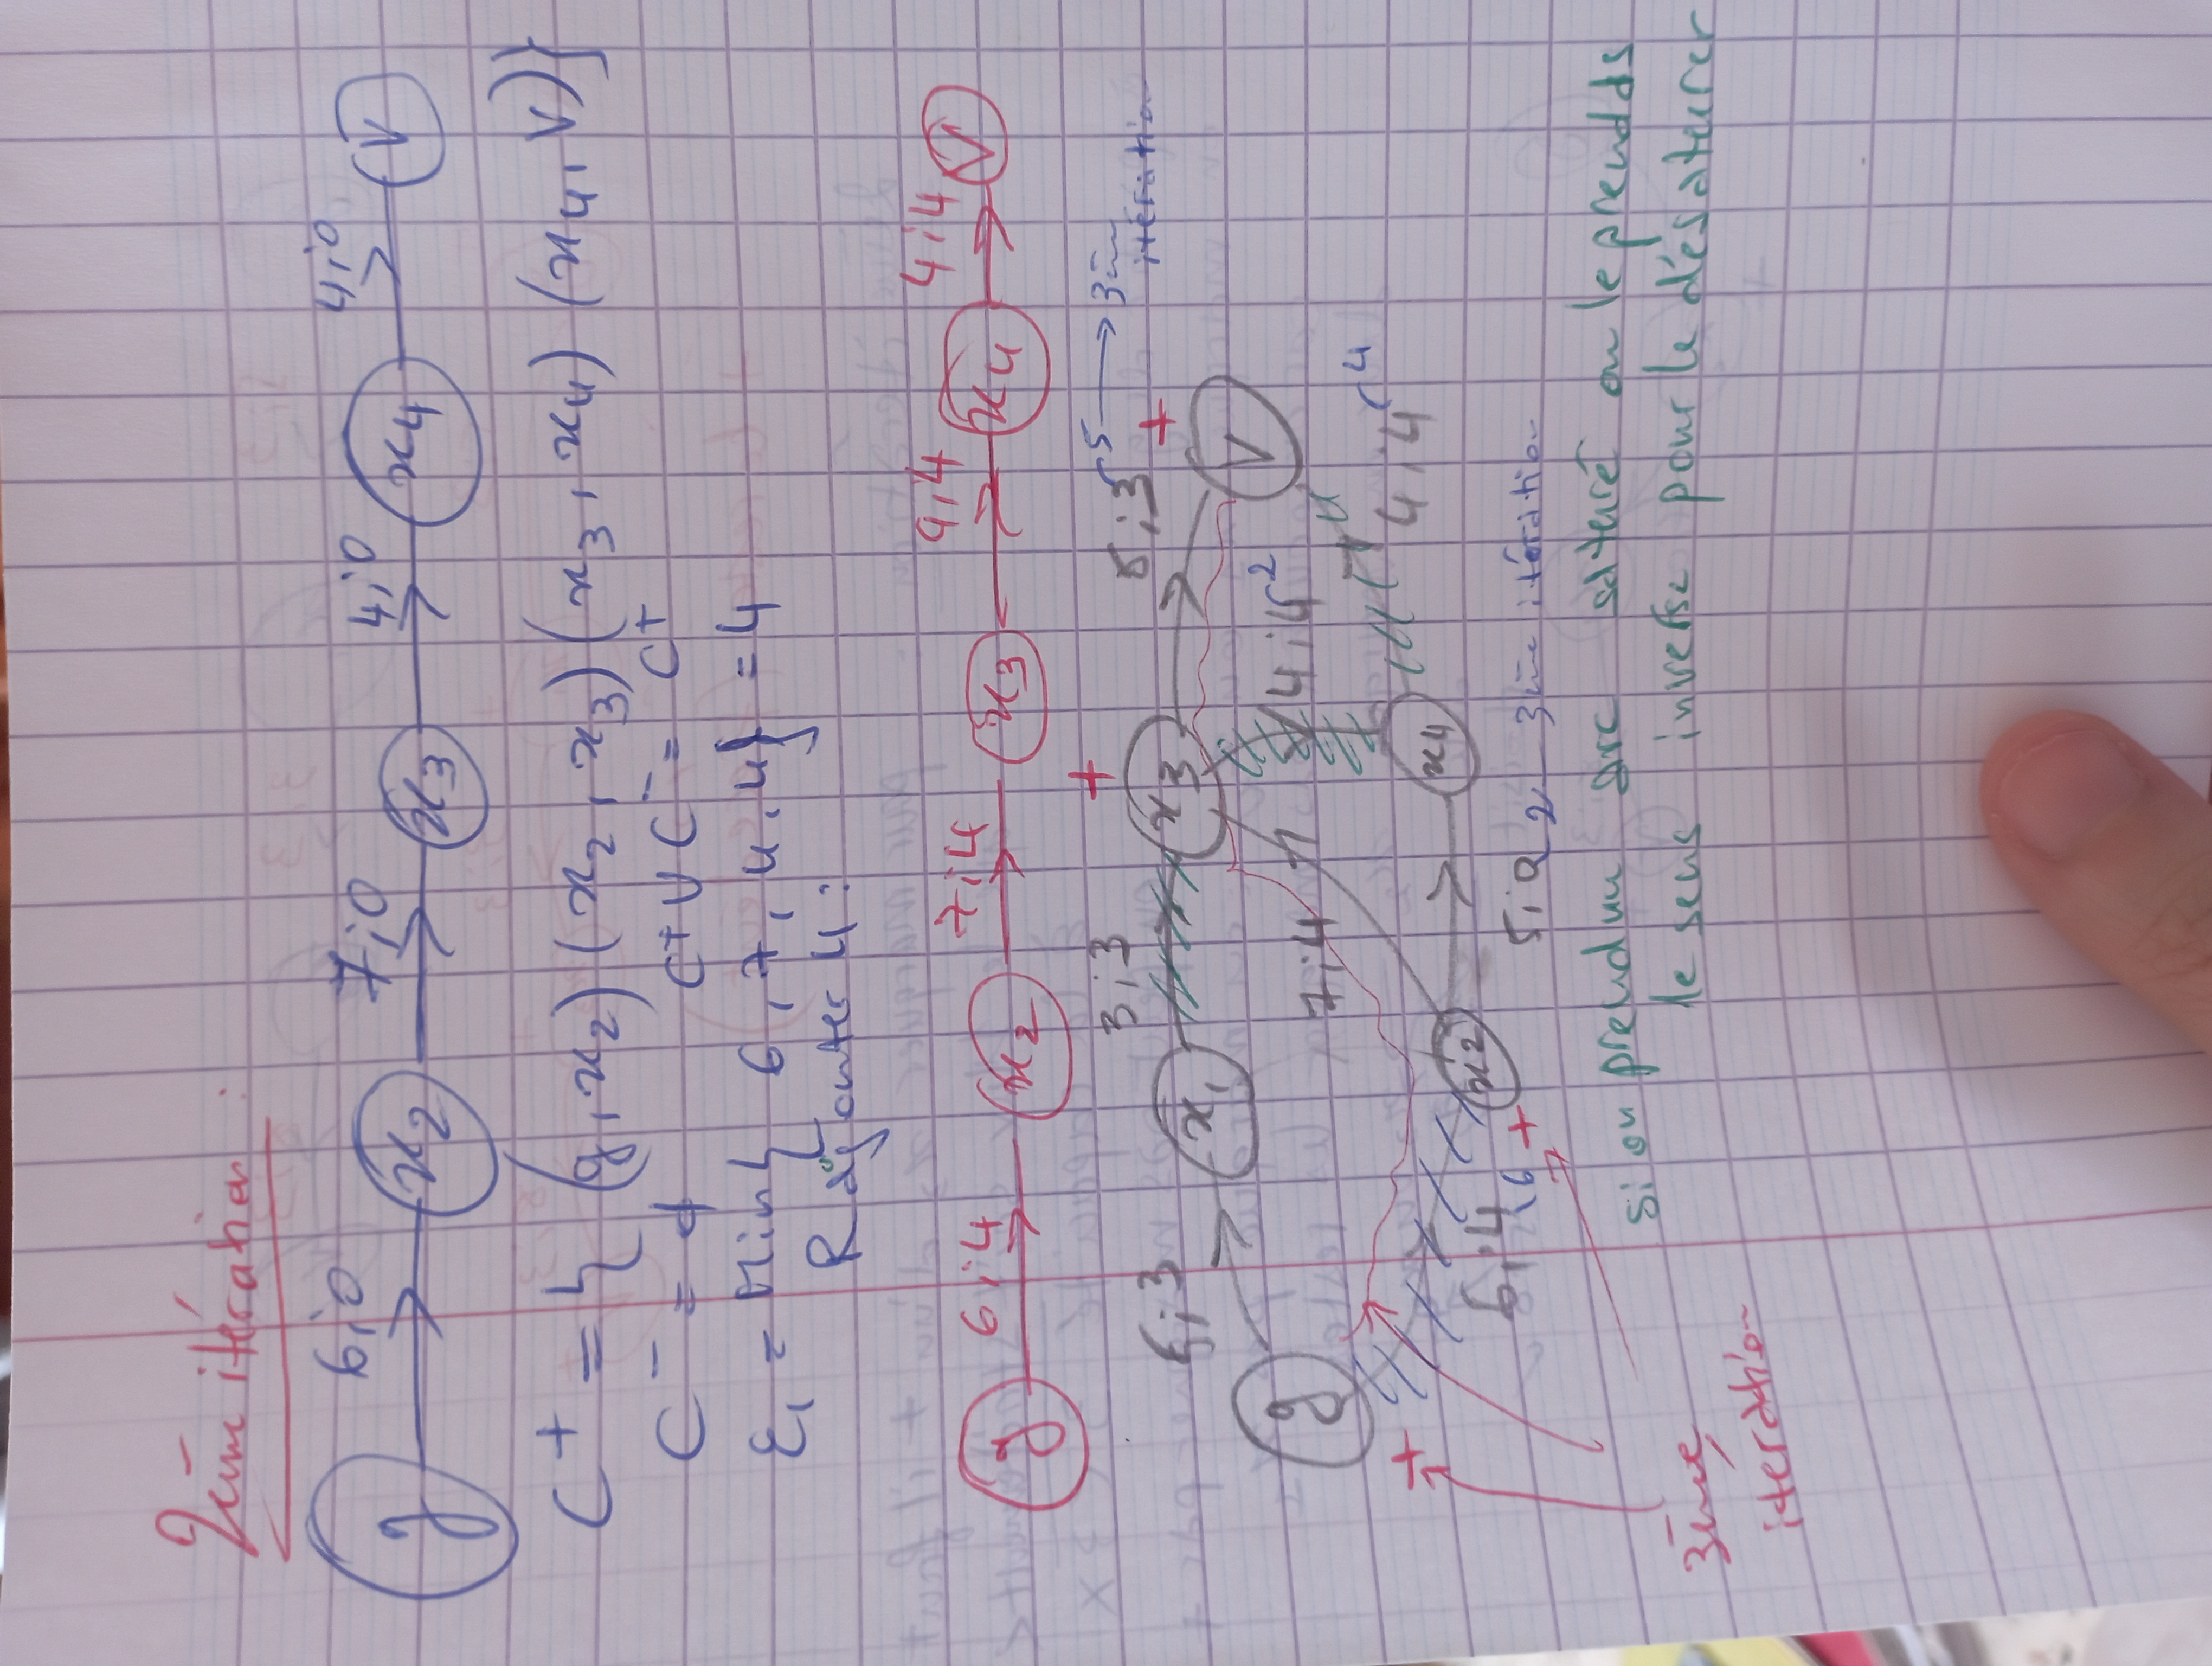 2ème itération :
6;0 7;0 4;0 4;0
g x2 x3 x4 V
C+ = { (g, x2) (x2, x3) (x3, x4) (x4, V)}
C- = ϕ C+ U C- = C+
ε1 = Min{ 6, 7, 4, 4} = 4
Rajouter 4 :
6;4 7;4 4;4 4;4
g x2 x3 x4 V
+
3;3 5 → 3ème
6;3 8;3 itération
+
x1 x3 V
g 7;4 4;4 2
4;4 4
+
x2 x4
6;4 6 + 5;0 2 3ème itération
si on prend un arc saturé on le prend ds
le sens inverse pour le désaturer
3ème
itération